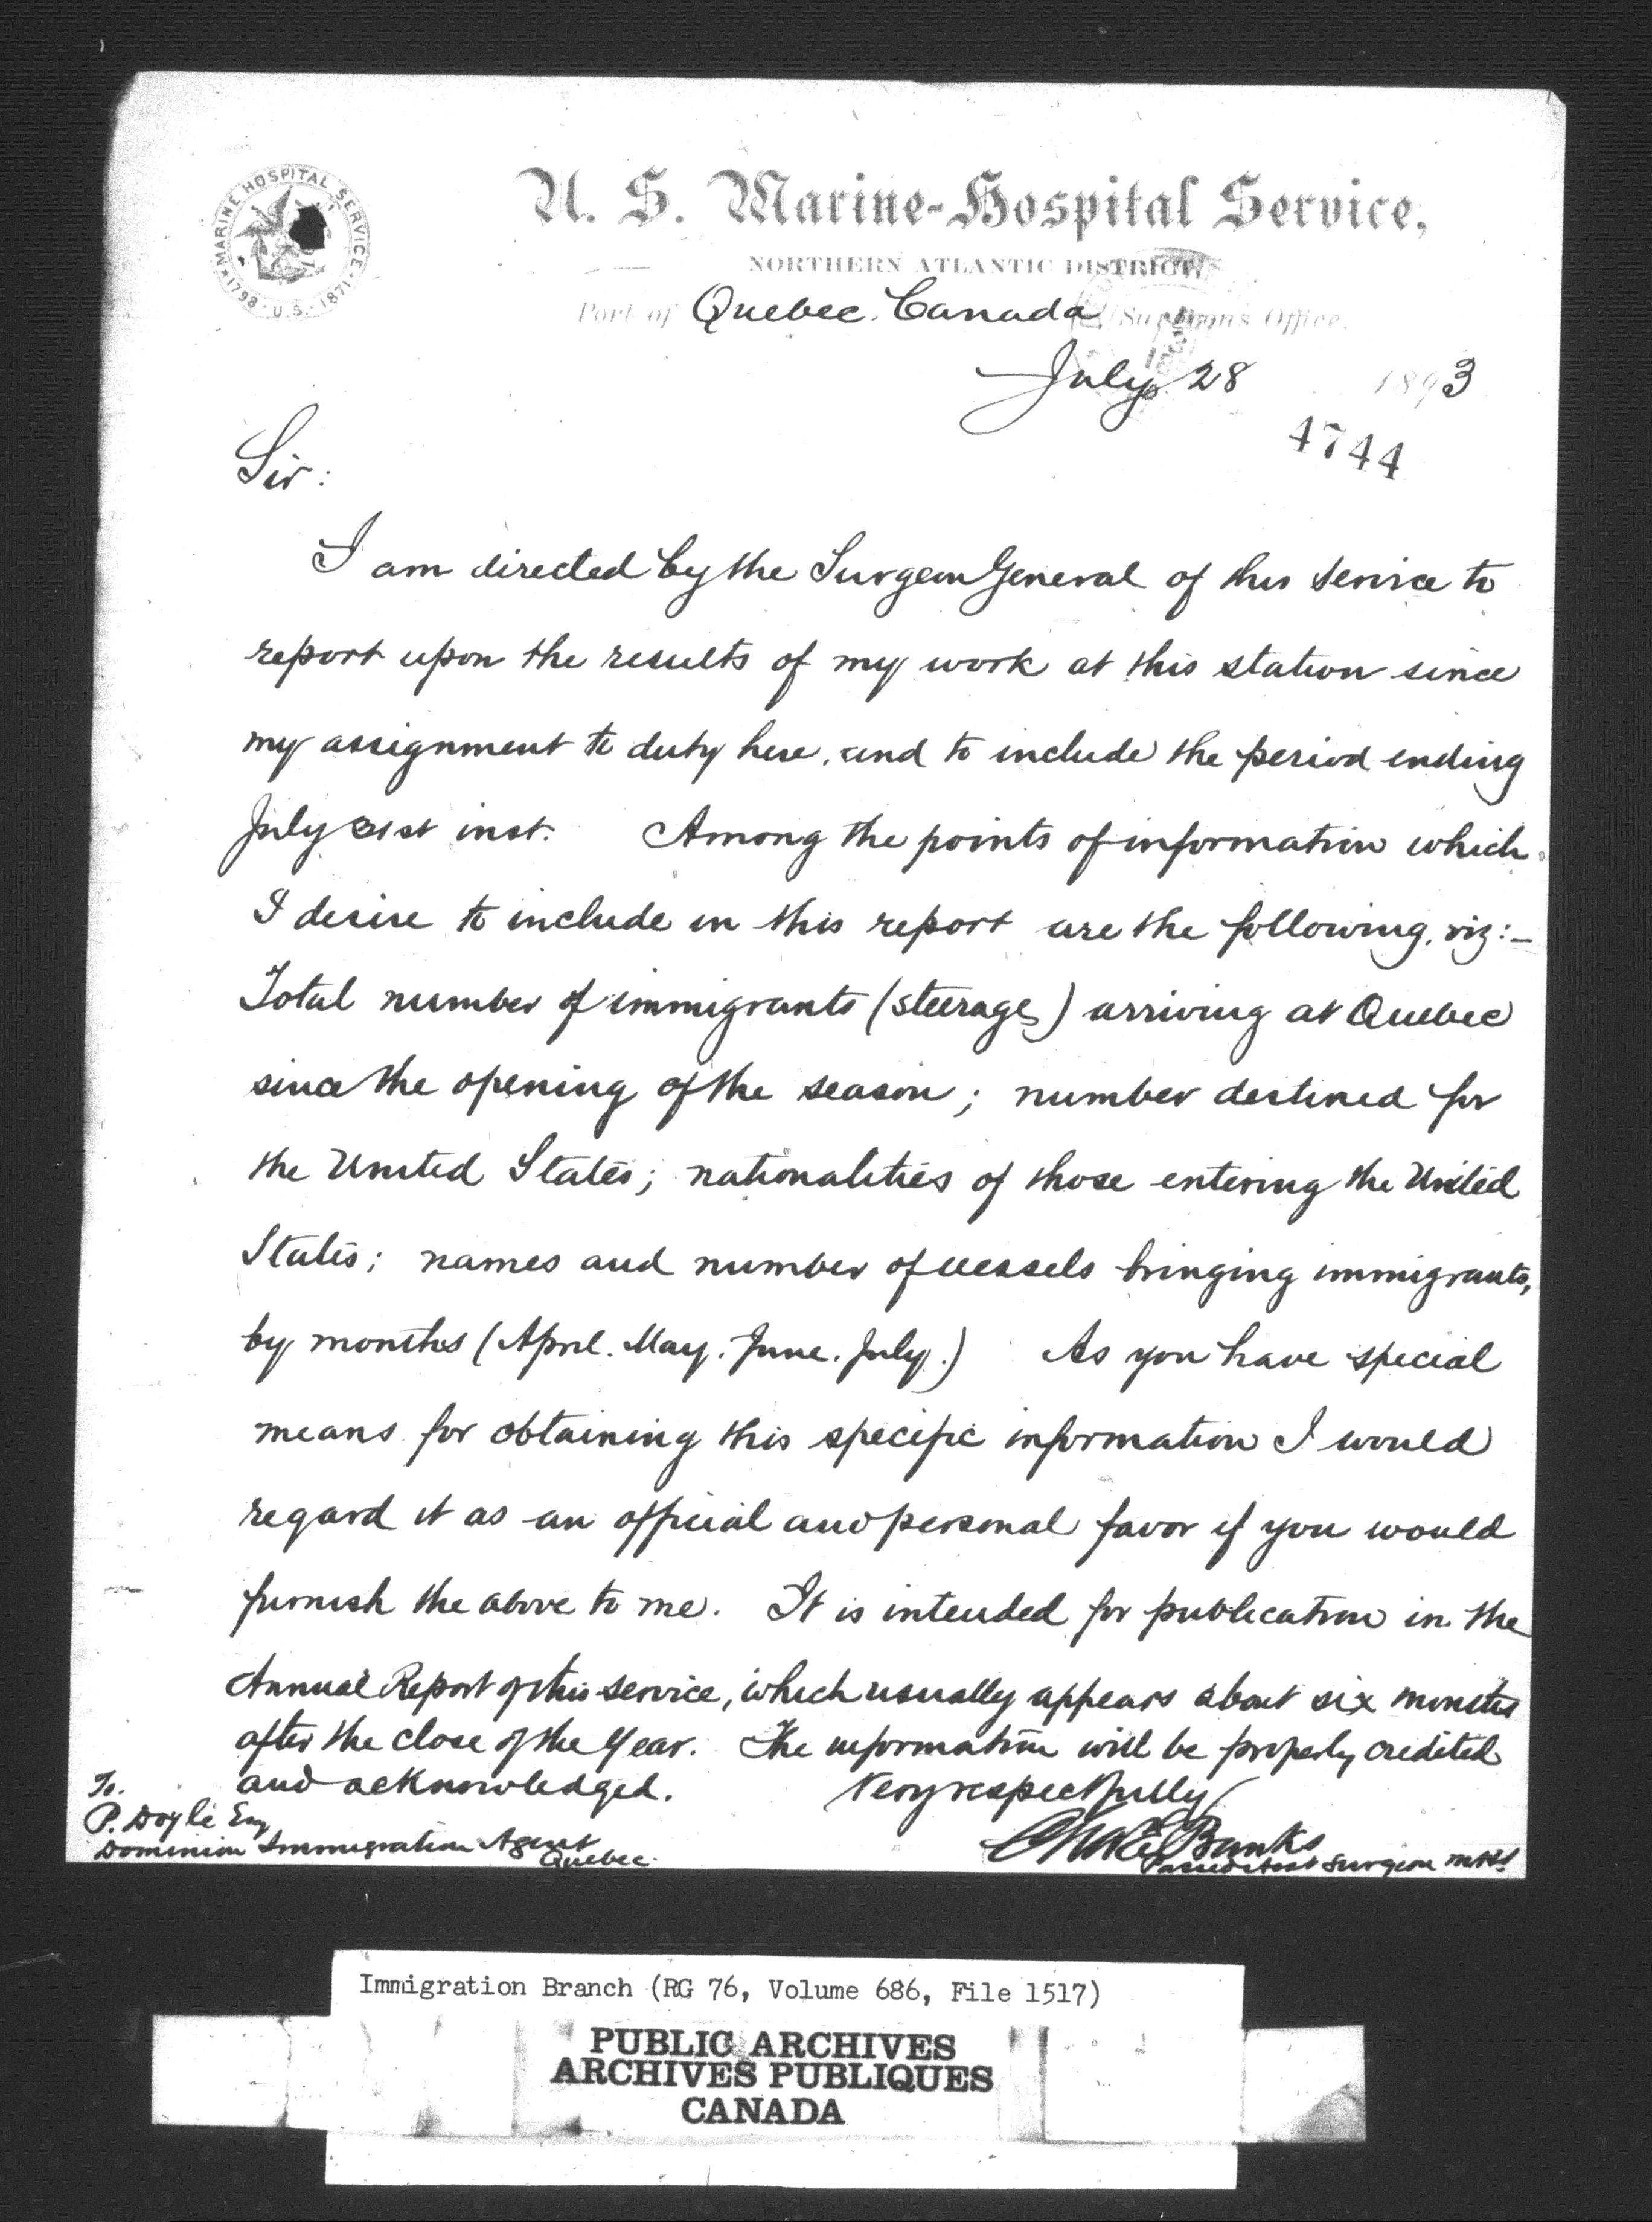 MARINE HOSPITAL SERVICE
1798 · U.S. · 1871
U. S. Marine-Hospital Service,
NORTHERN ATLANTIC DISTRICT,
Port of Quebec. Canada Surgeon's Office.
July 28 1893
4744
Sir:
I am directed by the Surgeon General of this service to
report upon the results of my work at this station since
my assignment to duty here, and to include the period ending
July 31st inst. Among the points of information which
I desire to include in this report are the following, viz:—
Total number of immigrants (steerage) arriving at Quebec
since the opening of the season; number destined for
the United States; nationalities of those entering the United
States; names and number of vessels bringing immigrants,
by months (April. May. June. July.) As you have special
means for obtaining this specific information I would
regard it as an official and personal favor if you would
furnish the above to me. It is intended for publication in the
Annual Report of this service, which usually appears about six months
after the close of the year. The information will be properly credited
and acknowledged. Very respectfully
To.
P. Doyle Esq
Dominion Immigration Agent
Quebec.
Chas E Banks
Passed Asst Surgeon M.H.S.
Immigration Branch (RG 76, Volume 686, File 1517)
PUBLIC ARCHIVES
ARCHIVES PUBLIQUES
CANADA